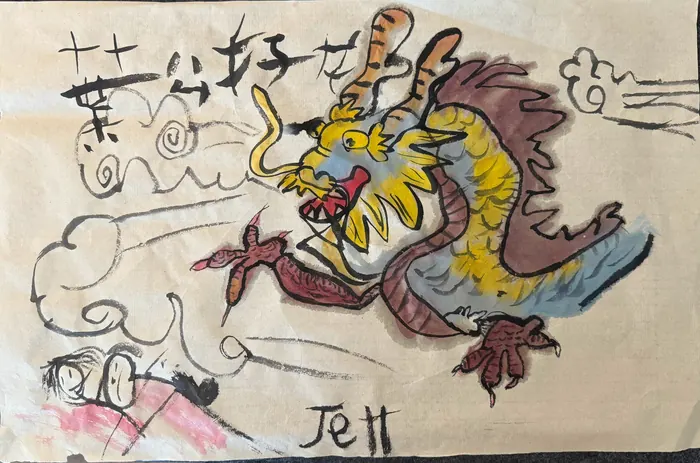 葉公好龙
Jett